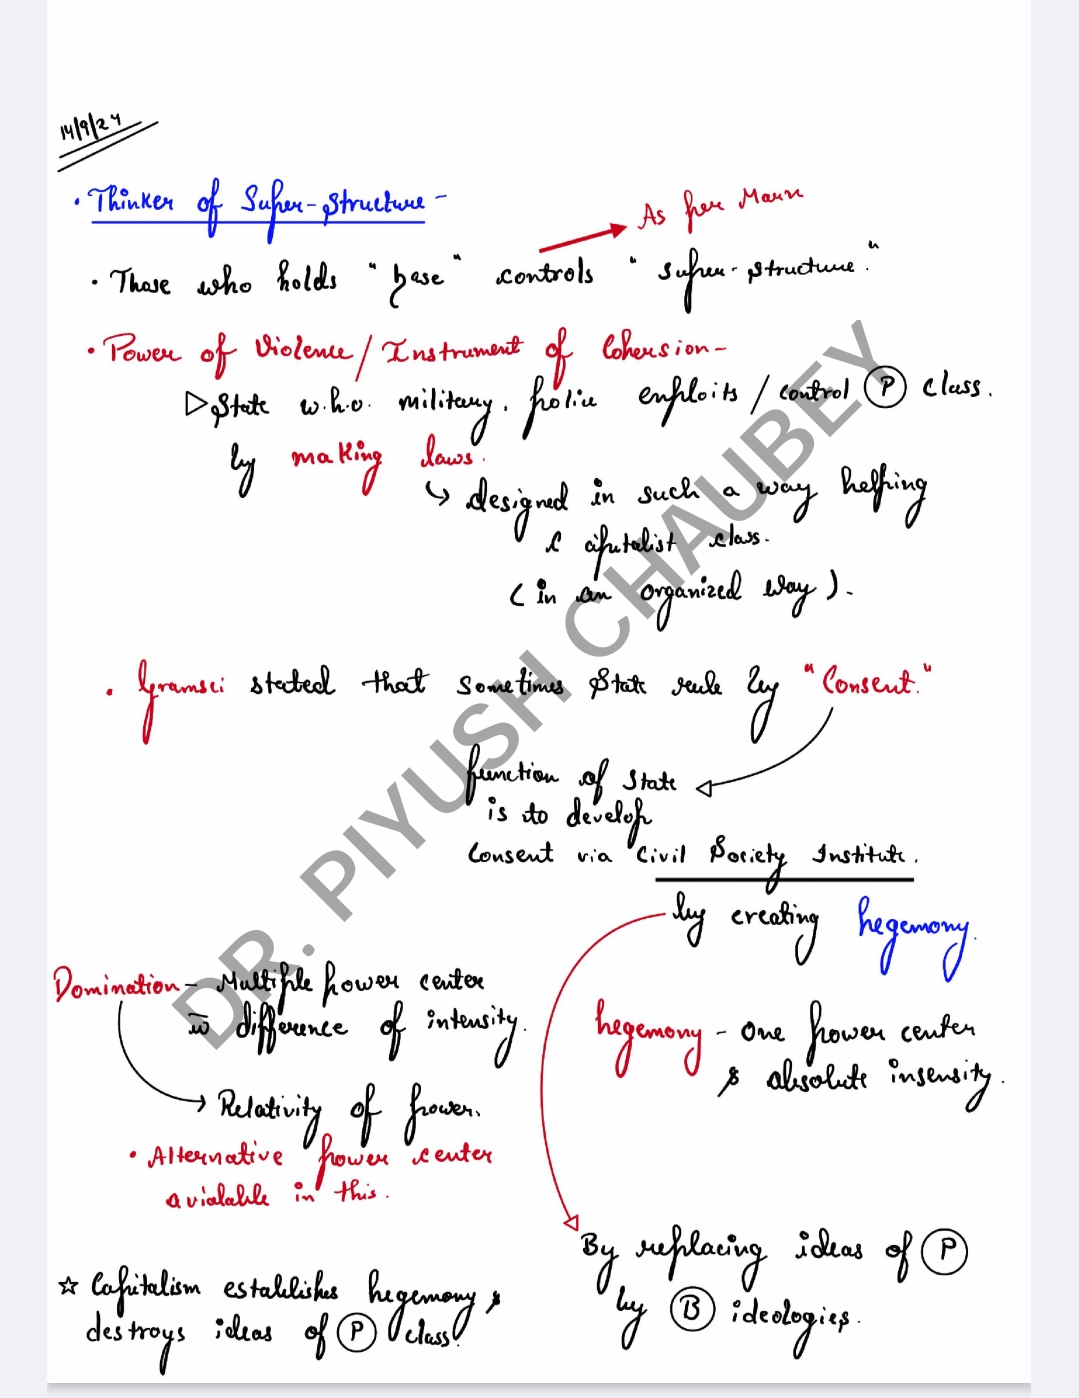 14/9/24
• Thinker of Super-Structure -
As per Marx
• Those who holds "base" controls "super-structure."
• Power of Violence / Instrument of Cohersion -
▷ State w.h.o. military, police exploits / control Ⓟ class.
by making laws.
↳ designed in such a way helping
capitalist class.
(in an organized way).
• Gramsci stated that sometimes State rule by "Consent."
function of State
is to develop
Consent via Civil Society Institute.
by creating hegemony.
Domination - Multiple power center
difference of intensity.
→ Relativity of power.
• Alternative power center
avialable in this.
hegemony - One power center
& absolute insensity.
By replacing ideas of Ⓟ
by Ⓑ ideologies.
☆ Capitalism establishes hegemony &
destroys ideas of Ⓟ class.
DR. PIYUSH CHAUBEY